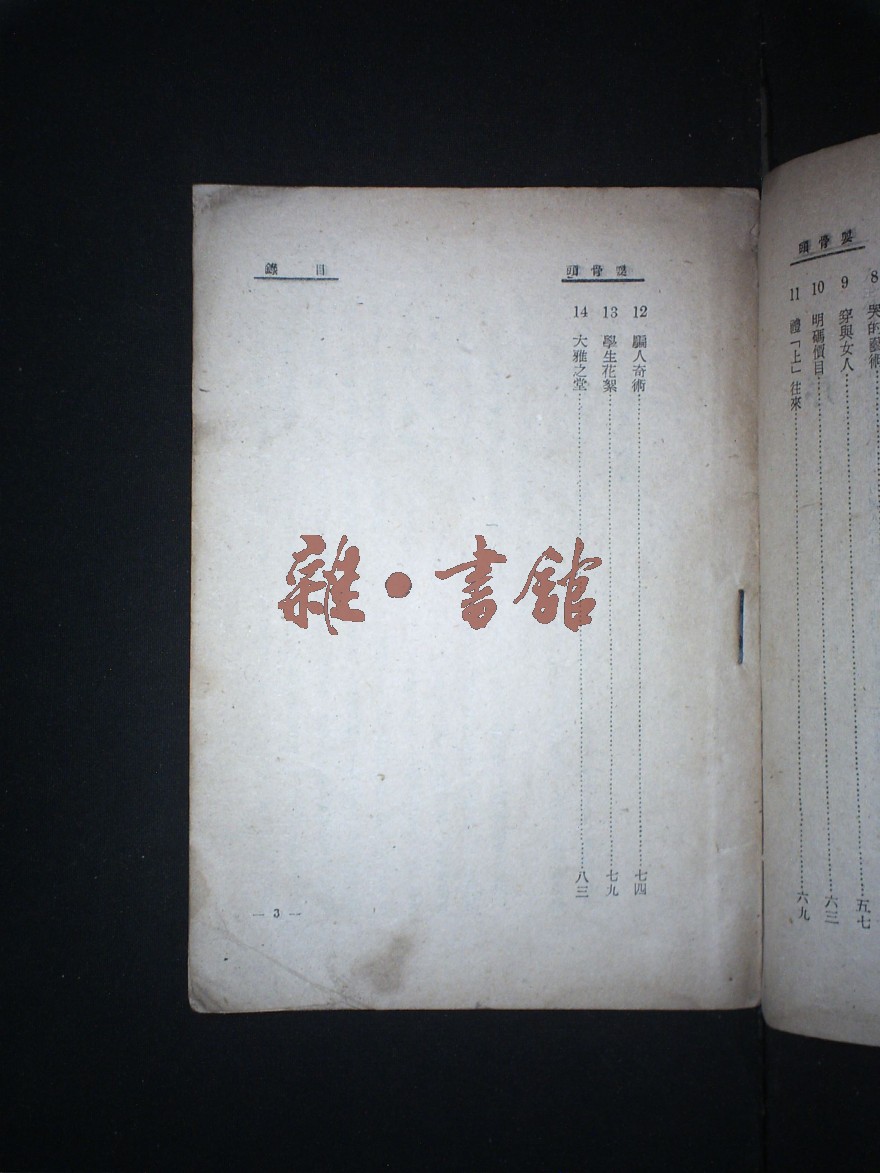 骨頭
8 哭的藝術
9 穿與女人……五七
10 明碼價目……六三
11 禮「上」往來……六九
骨頭
目錄
12 騙人奇術……七四
13 學生花絮……七九
14 大雅之堂……八三
— 3 —
雜·書館